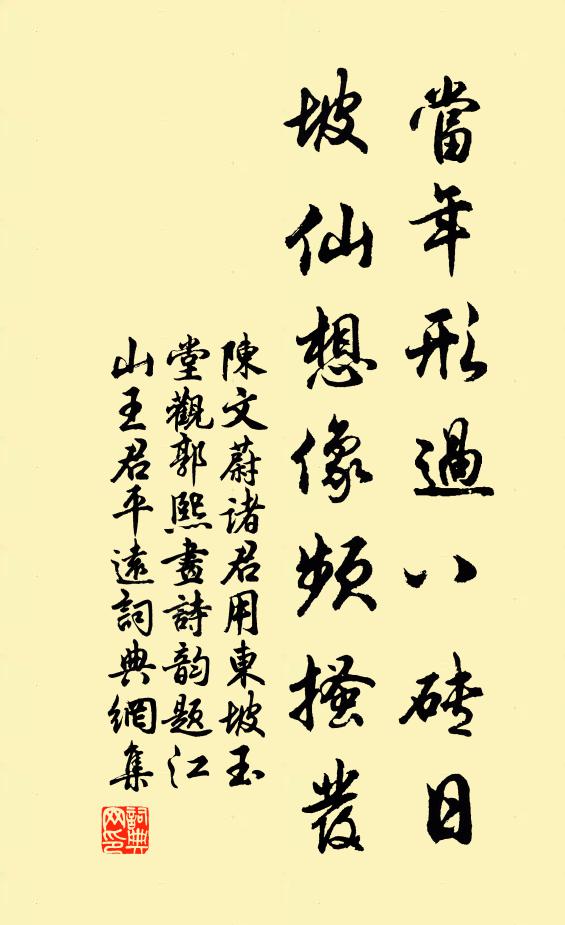 當年形過八磚日
坡仙想像頻搔發
陳文蔚諸君用東坡玉
堂觀郭熙畫詩韵題江
山王君平遠詞典網集
詞典網印